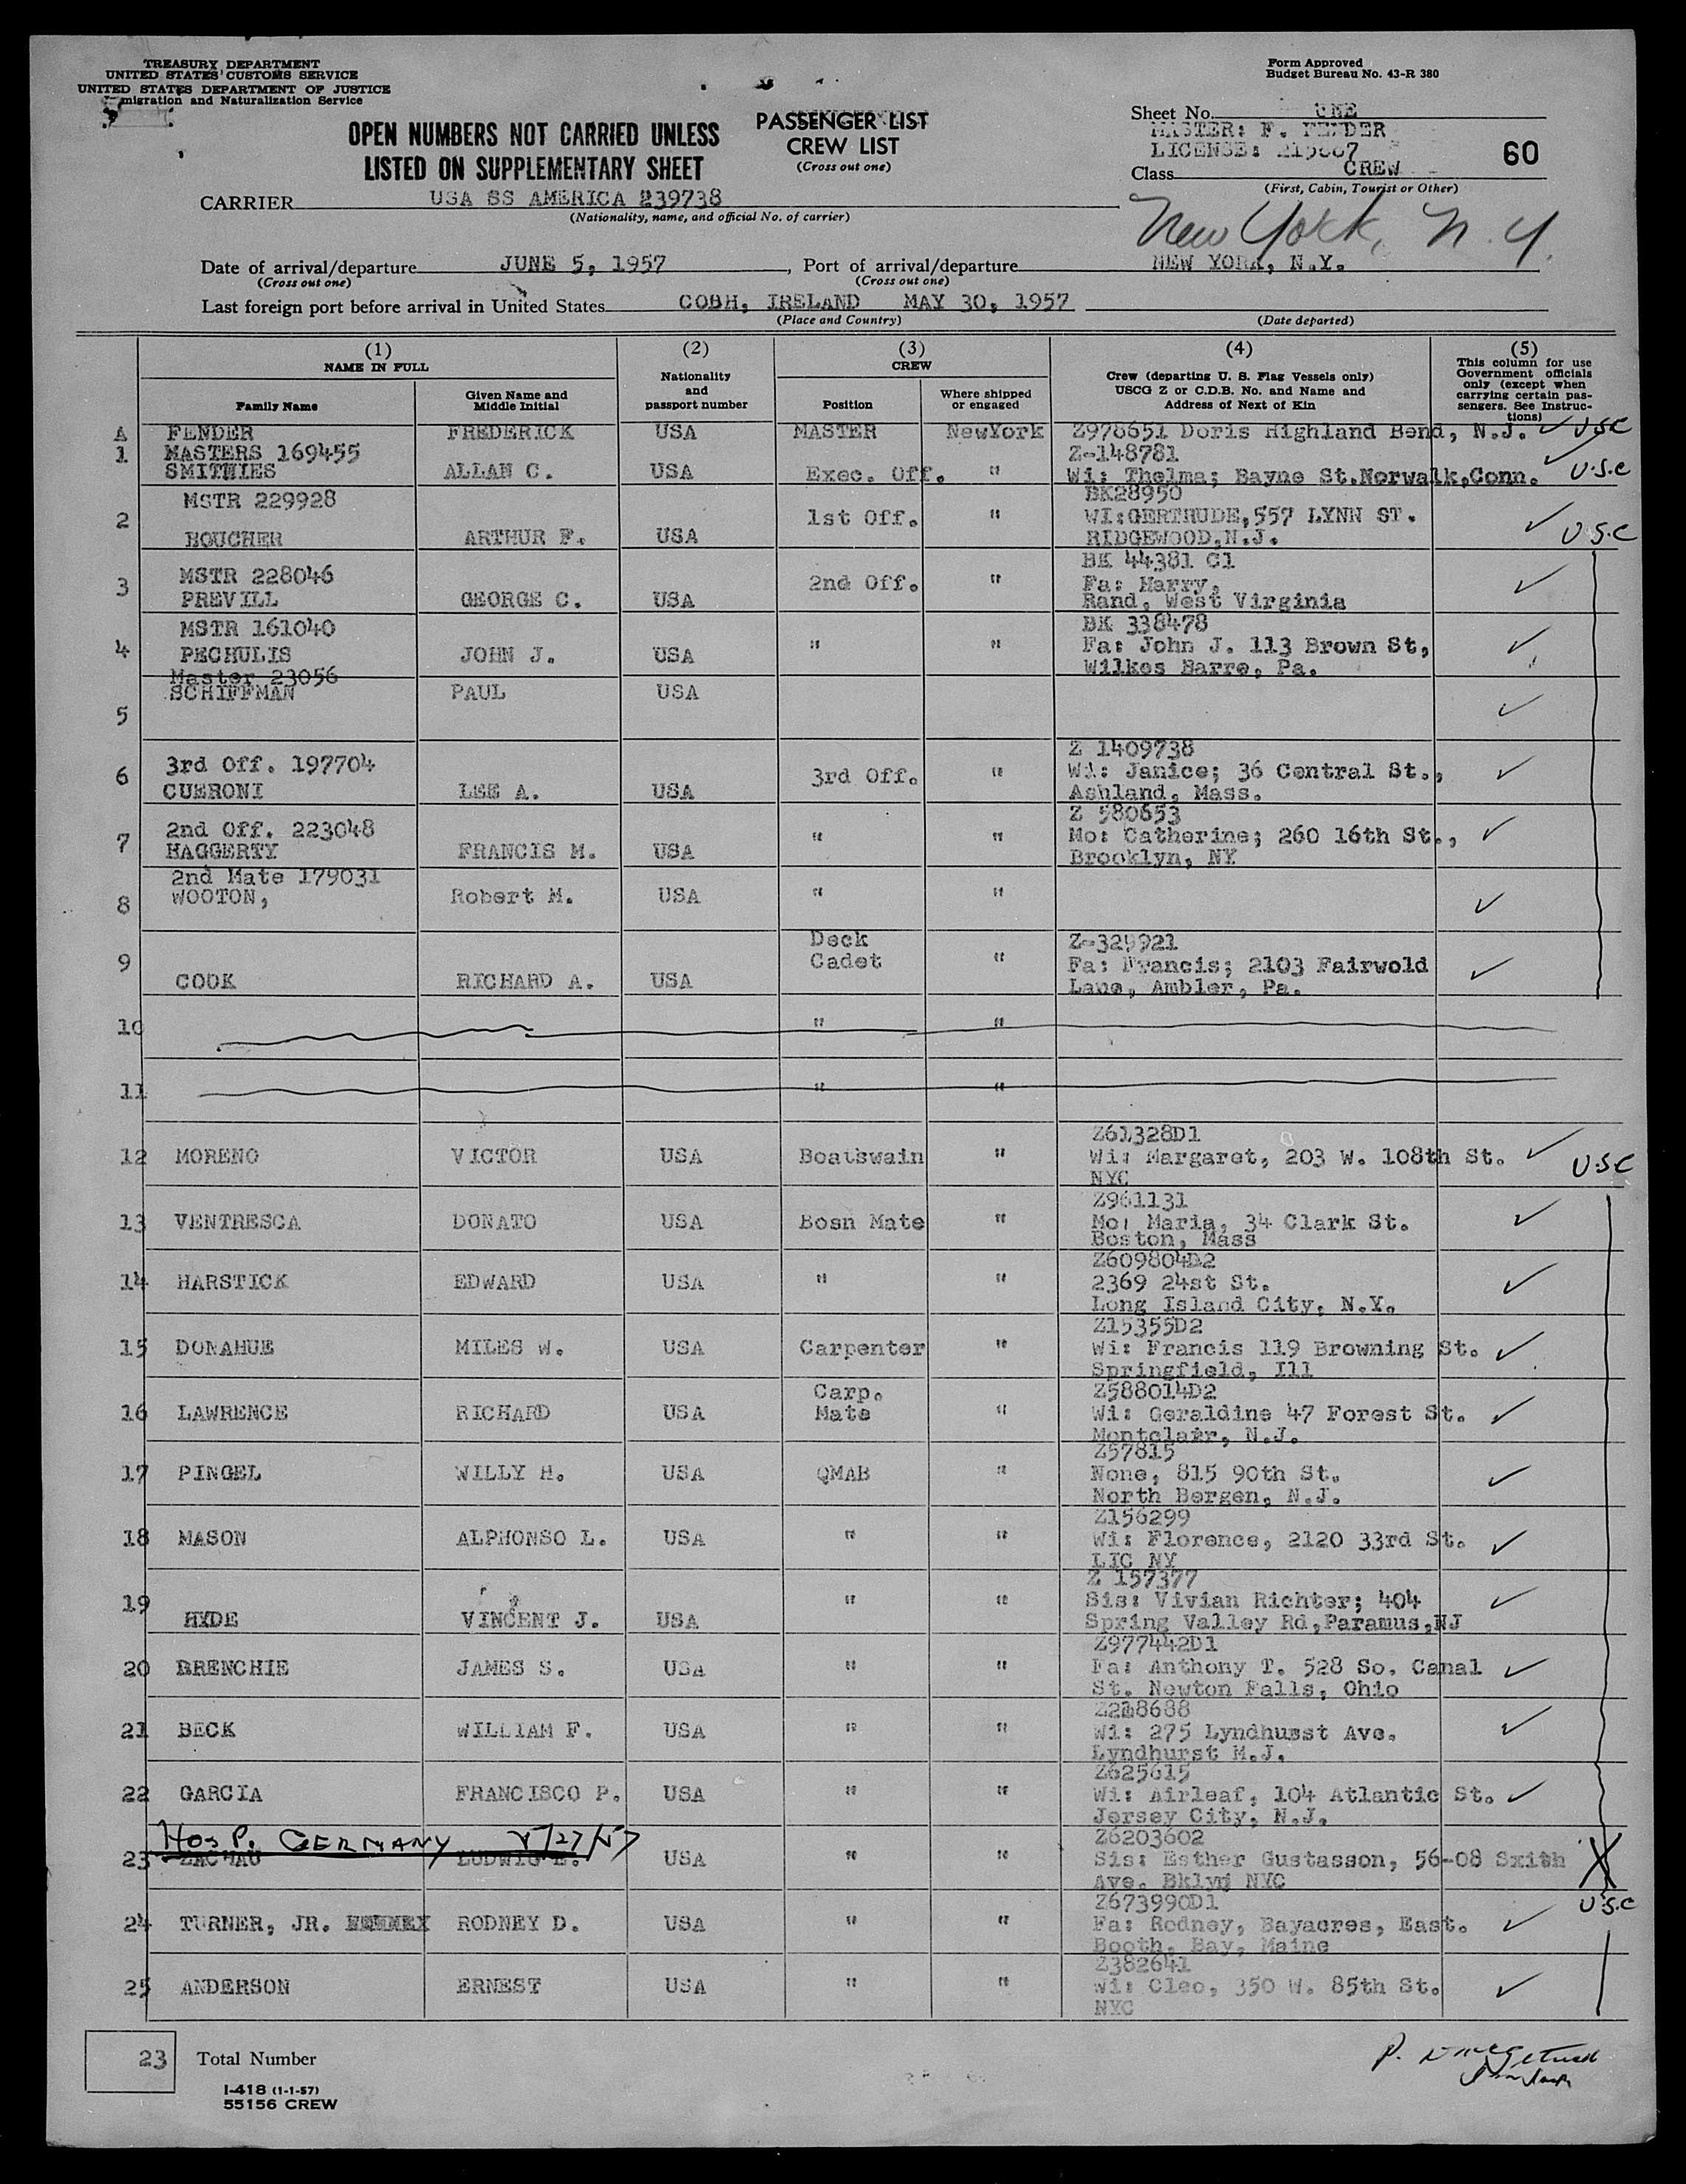 TREASURY DEPARTMENT
UNITED STATES CUSTOMS SERVICE
UNITED STATES DEPARTMENT OF JUSTICE
migration and Naturalization Service
Form Approved
Budget Bureau No. 43-R 380
OPEN NUMBERS NOT CARRIED UNLESS
LISTED ON SUPPLEMENTARY SHEET
PASSENGER LIST
CREW LIST
(Cross out one)
Sheet No. ONE
MASTER: F. FENDER
LICENSE:
Class CREW
(First, Cabin, Tourist or Other)
60
CARRIER USA SS AMERICA 239738
(Nationality, name, and official No. of carrier)
New York, N.Y.
Date of arrival/departure JUNE 5, 1957, Port of arrival/departure NEW YORK, N.Y.
(Cross out one) (Cross out one)
Last foreign port before arrival in United States COBH, IRELAND MAY 30, 1957
(Place and Country) (Date departed)
(1) NAME IN FULL
Family Name
Given Name and Middle Initial
(2) Nationality and passport number
(3) CREW
Position
Where shipped or engaged
(4) Crew (departing U. S. Flag Vessels only) USCG Z or C.D.B. No. and Name and Address of Next of Kin
(5) This column for use Government officials only (except when carrying certain passengers. See Instructions)
A FENDER FREDERICK USA MASTER NewYork Z978651 Doris Highland Bend, N.J. ✓ USC
1 MASTERS 169455 Z-148781
SMITHIES ALLAN C. USA Exec. Off. " Wi: Thelma; Bayne St.Norwalk,Conn. ✓ U.S.C
MSTR 229928 BK28950
2 1st Off. " WI:GERTRUDE,557 LYNN ST. ✓ U.S.C
BOUCHER ARTHUR F. USA RIDGEWOOD,N.J.
BK 44381 C1
3 MSTR 228046 2nd Off. " Fa: Harry, ✓
PREVILL GEORGE C. USA Rand, West Virginia
MSTR 161040 BK 338478
4 PECHULIS JOHN J. USA " " Fa: John J. 113 Brown St, ✓
Wilkes Barre, Pa.
Master 23056
SCHIFFMAN PAUL USA
5 ✓
Z 1409738
6 3rd Off. 197704 3rd Off. " Wi: Janice; 36 Central St., ✓
CUERONI LEE A. USA Ashland, Mass.
Z 580653
7 2nd Off. 223048 " " Mo: Catherine; 260 16th St., ✓
HAGGERTY FRANCIS M. USA Brooklyn, NY
2nd Mate 179031
8 WOOTON, Robert M. USA " " ✓
Deck Z-325921
9 Cadet " Fa: Francis; 2103 Fairwold ✓
COOK RICHARD A. USA Lane, Ambler, Pa.
10 " "
11 " "
Z61328D1
12 MORENO VICTOR USA Boatswain " Wi: Margaret, 203 W. 108th St. ✓ U.S.C
NYC
Z961131
13 VENTRESCA DONATO USA Bosn Mate " Mo: Maria, 34 Clark St. ✓
Boston, Mass
Z609804D2
14 HARSTICK EDWARD USA " " 2369 24st St. ✓
Long Island City, N.Y.
Z15355D2
15 DONAHUE MILES W. USA Carpenter " Wi: Francis 119 Browning St. ✓
Springfield, Ill
Carp. Z588014D2
16 LAWRENCE RICHARD USA Mate " Wi: Geraldine 47 Forest St. ✓
Montclair, N.J.
Z57815
17 PINGEL WILLY H. USA QMAB " None, 815 90th St. ✓
North Bergen, N.J.
Z156299
18 MASON ALPHONSO L. USA " " Wi: Florence, 2120 33rd St. ✓
LIC NY
Z 157377
19 " " Sis: Vivian Richter; 404 ✓
HYDE VINCENT J. USA Spring Valley Rd,Paramus,NJ
Z977442D1
20 BRENCHIE JAMES S. USA " " Fa: Anthony T. 528 So. Canal ✓
St. Newton Falls, Ohio
21 BECK WILLIAM F. USA " " Wi: 275 Lyndhusst Ave. ✓
Lyndhurst N.J.
Z625615
22 GARCIA FRANCISCO P. USA " " Wi: Airleaf, 104 Atlantic St. ✓
Jersey City, N.J.
HosP. GERMANY 5/27/57 Z6203602
23 ZACHAU LUDWIG E. USA " " Sis: Esther Gustasson, 56-08 Sxith X
Ave. Bklyn NYC
Z673990D1 U.S.C
24 TURNER, JR. RODNEY D. USA " " Fa: Rodney, Bayacres, East. ✓
Booth, Bay, Maine
Z382641
25 ANDERSON ERNEST USA " " Wi: Cleo, 350 W. 85th St. ✓
NYC
23 Total Number
I-418 (1-1-57)
55156 CREW